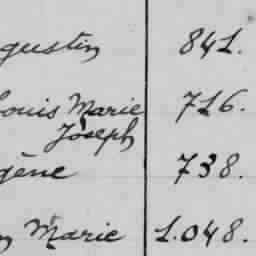 gustin 841.
Louis Marie 716.
Joseph
gène 738.
Marie 1.048.